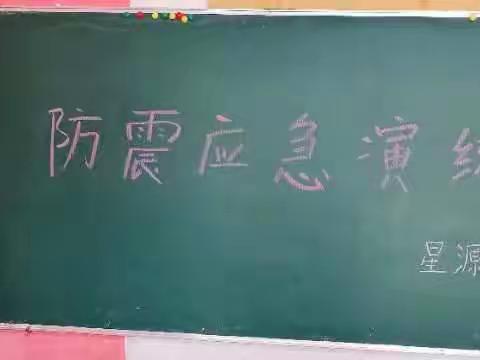 防震应急演练
星源